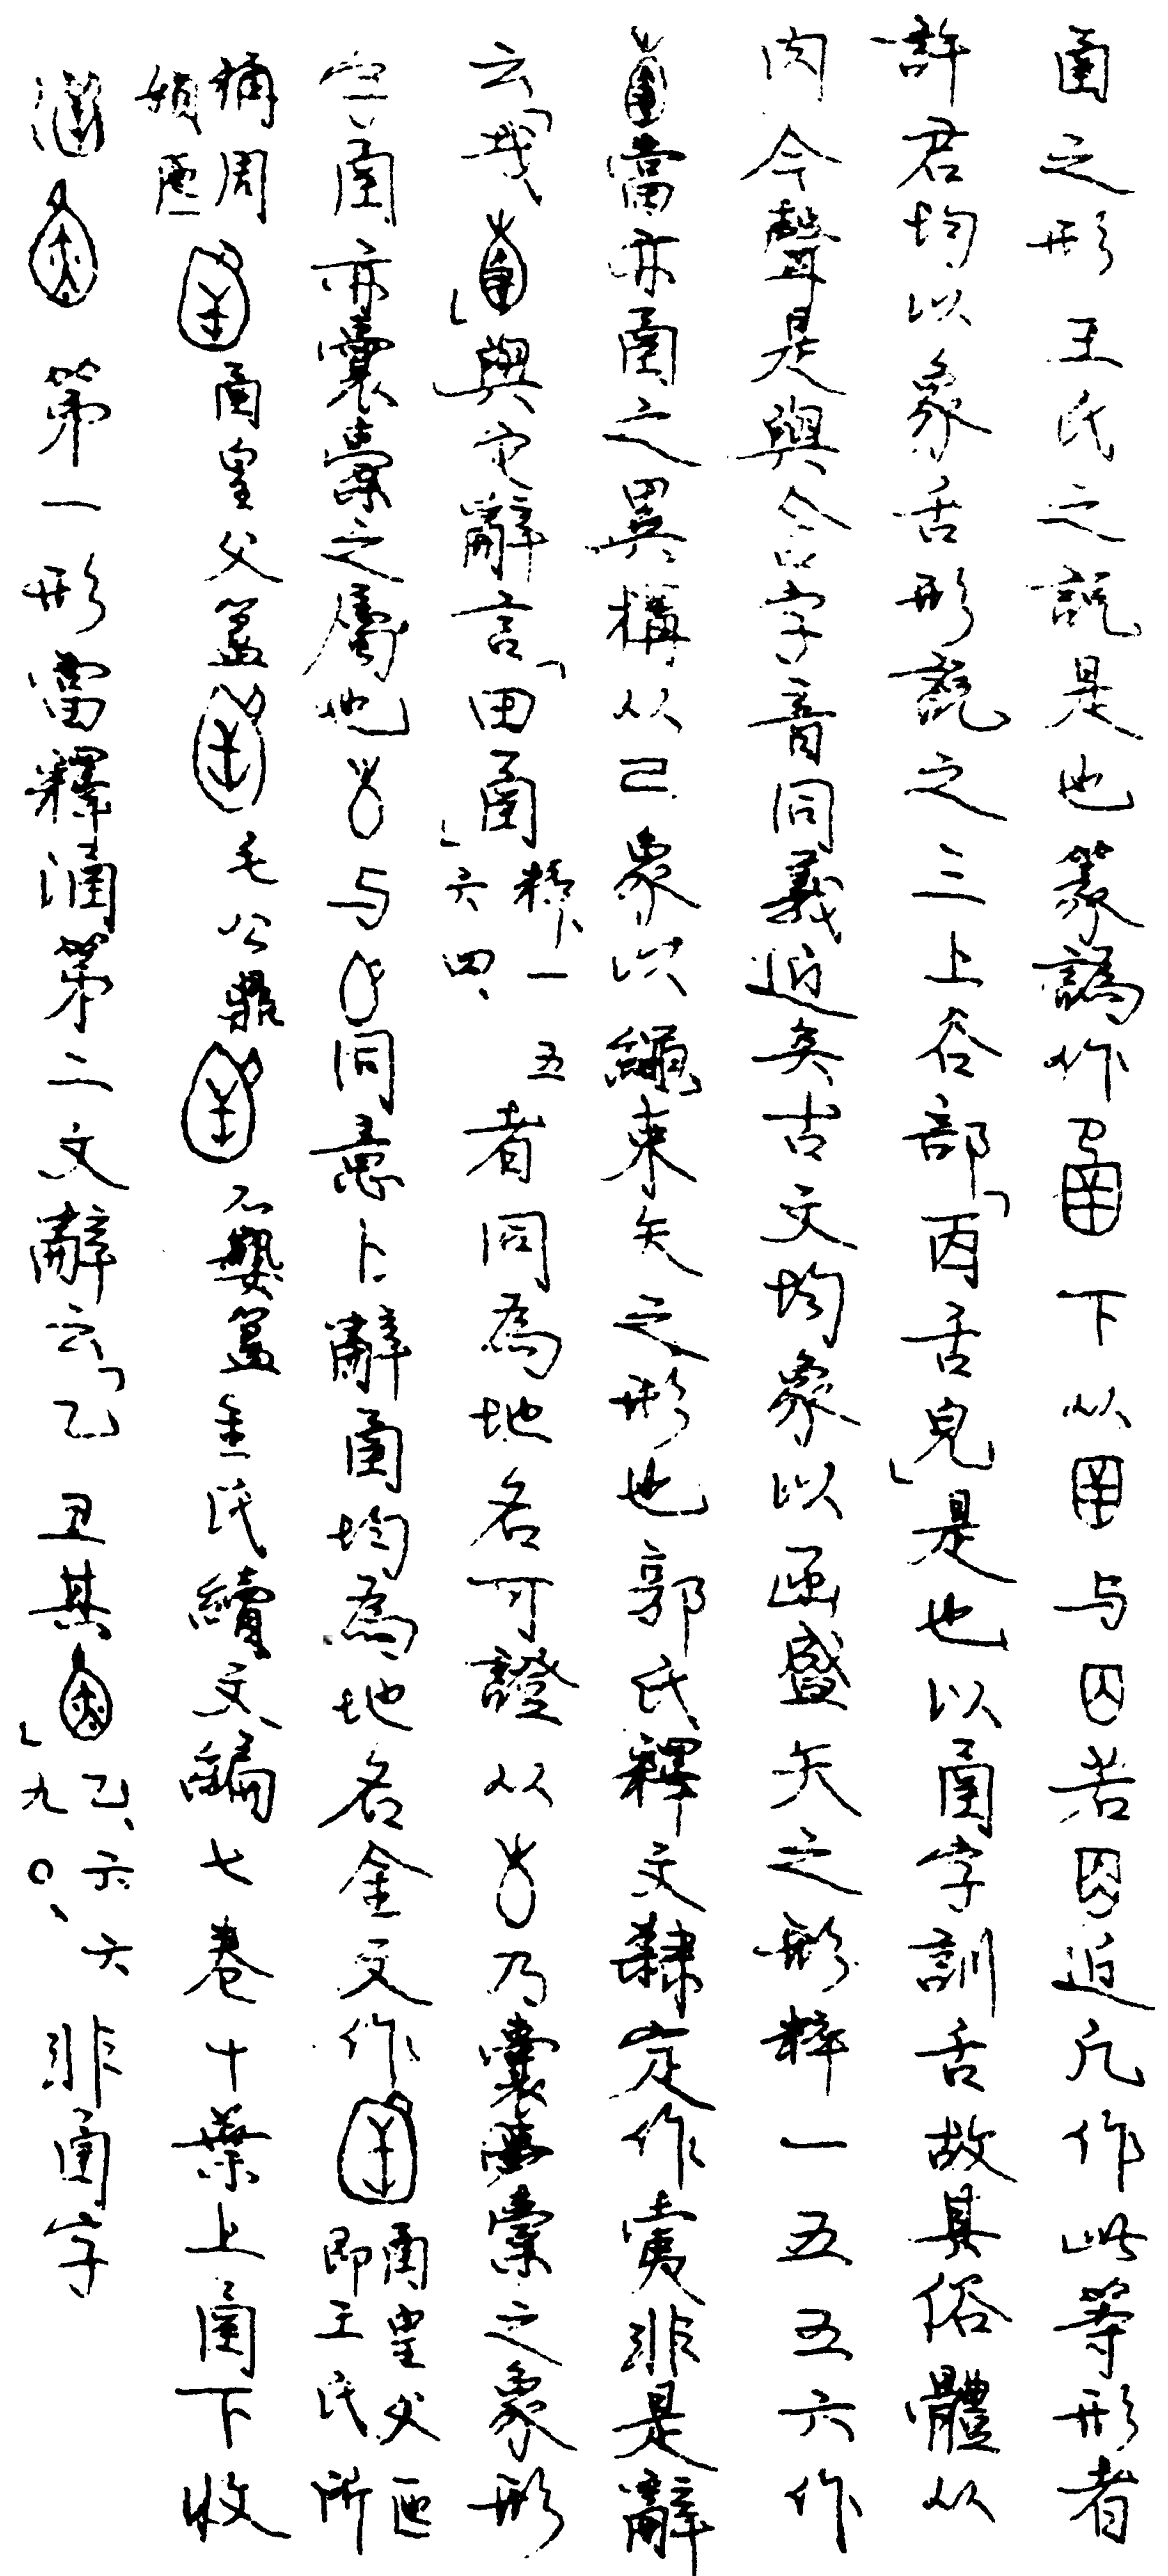 圅之形王氏之說是也篆譌作下从与囚若囚近凡作此等形者
許君均以象舌形說之三上谷部「㐁舌皃」是也以圅字訓舌故其俗體从
肉今聲是與含字音同義近矣古文均象以函盛矢之形粹一五五六作
當亦圅之異構从己象以繩束矢之形也郭氏釋文隸定作㚄非是辭
云「𢦏」與它辭言「田圅」粹一五六四、者同為地名可證从乃囊橐之象形
字圅亦囊橐之屬也与同意卜辭圅均為地名金文作圅皇父匜即王氏所
稱周娟匜圅皇父簋毛公鼎簋金氏續文編七卷十葉上圅下收
第一形當釋涵第二文辭云「乙丑其」乙、六六九〇、非圅字